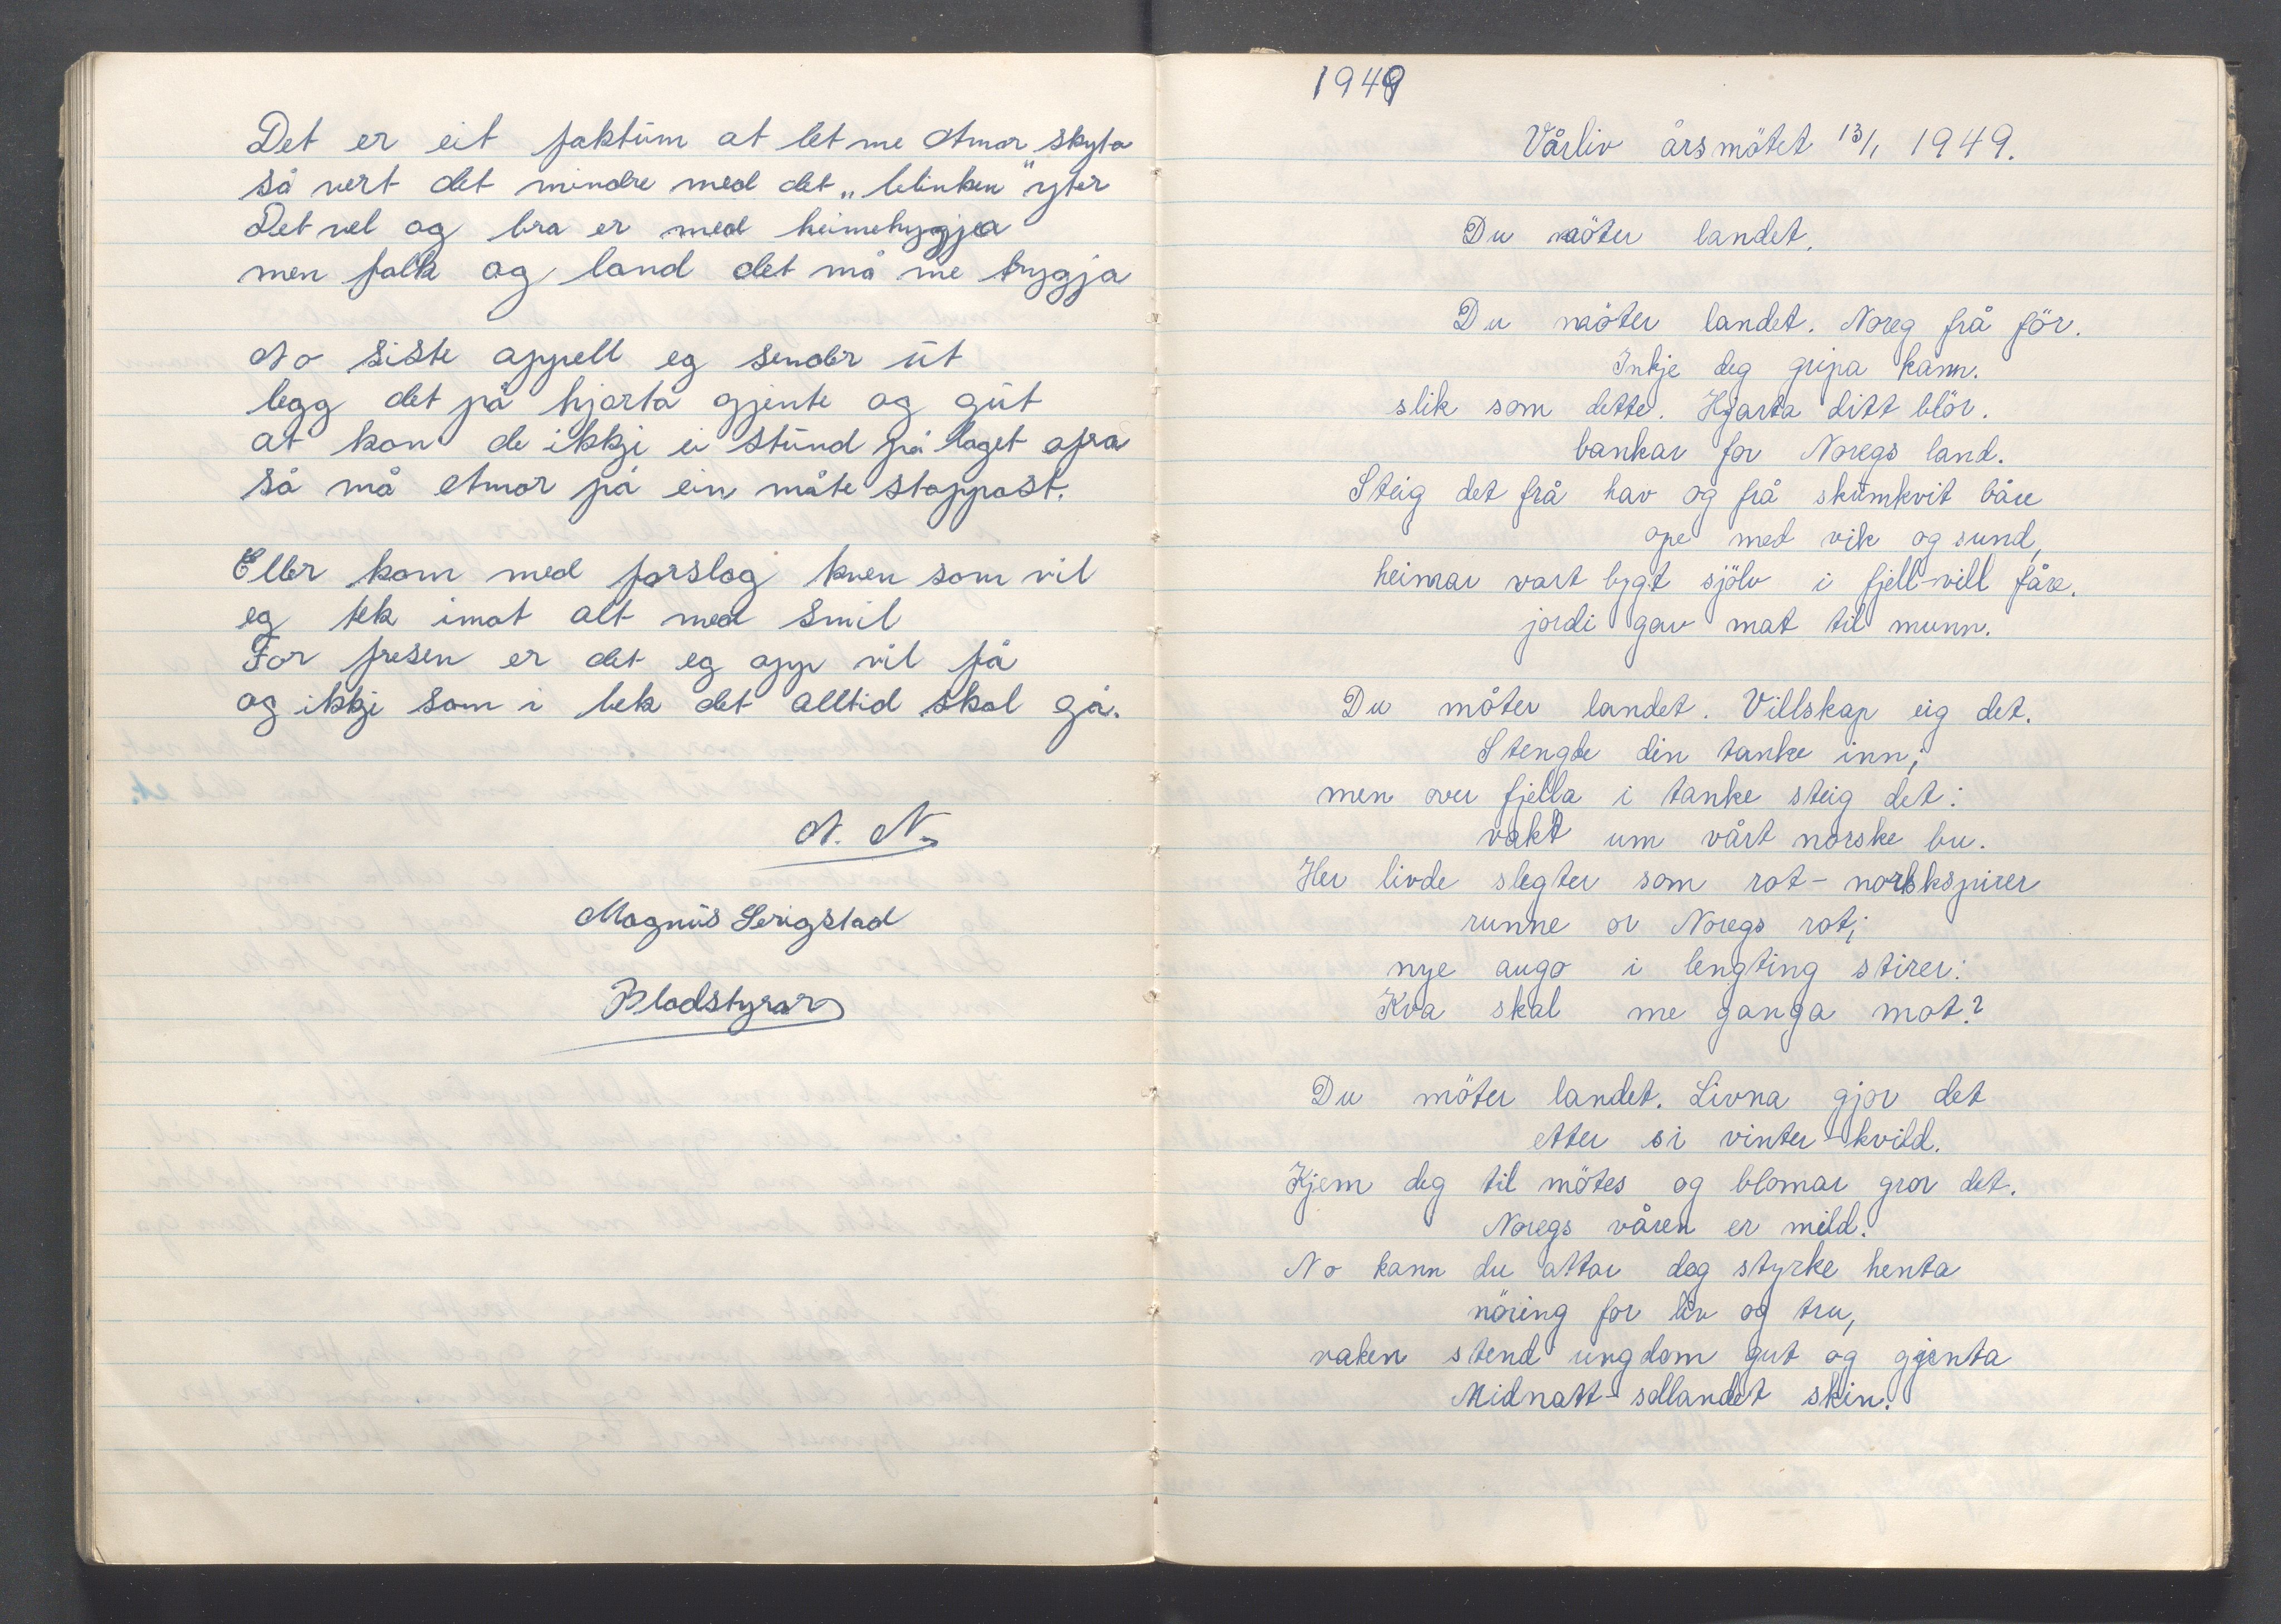 Det er eit faktum at let me Amor skyta
så vert det mindre med det „blinken" yter
Det vel og bra er med heimehyggja
men folk og land det må me byggja
No siste appell eg sender út
legg det på hjarta gjente og gút
at kan de ikkje ei stúnd på laget ofra
så må Amor på ein måte stoppast.
Eller kom med forslag kven som vil
eg tek imot alt med smil
For presen er det eg opp vil få
og ikkje som i lek det alltid skal gå.
N. N.
Magnús Serigstad
Bladstyrar
1949
Vårliv årsmötet 13/1 1949.
Du möter landet.
Du möter landet. Noreg frå för.
Inkje deg gripa kann.
slik som dette. Hjarta ditt blör.
bankar for Noregs land.
Steig det frå hav og frå skumkvit båre
ope med vik og sund,
heimar vart bygt sjölv i fjell-vill fåre.
jordi gav mat til munn.
Du möter landet. Villskap eig det.
Stengde din tanke inn;
men over fjella i tanke steig det:
vakt um vårt norske bu.
Her livde slegter som rot-norskspirer
runne or Noregs rot;
nye augo i lengting stirer:
Kva skal me ganga mot?
Du möter landet. Livna gjor det
etter si vinter-kvild.
Kjem deg til mötes og blomar gror det.
Noregs våren er mild.
No kann du attar deg styrke henta
nöring for liv og tru,
vaken stend ungdom gut og gjenta
Midnatt-sollandet skin.